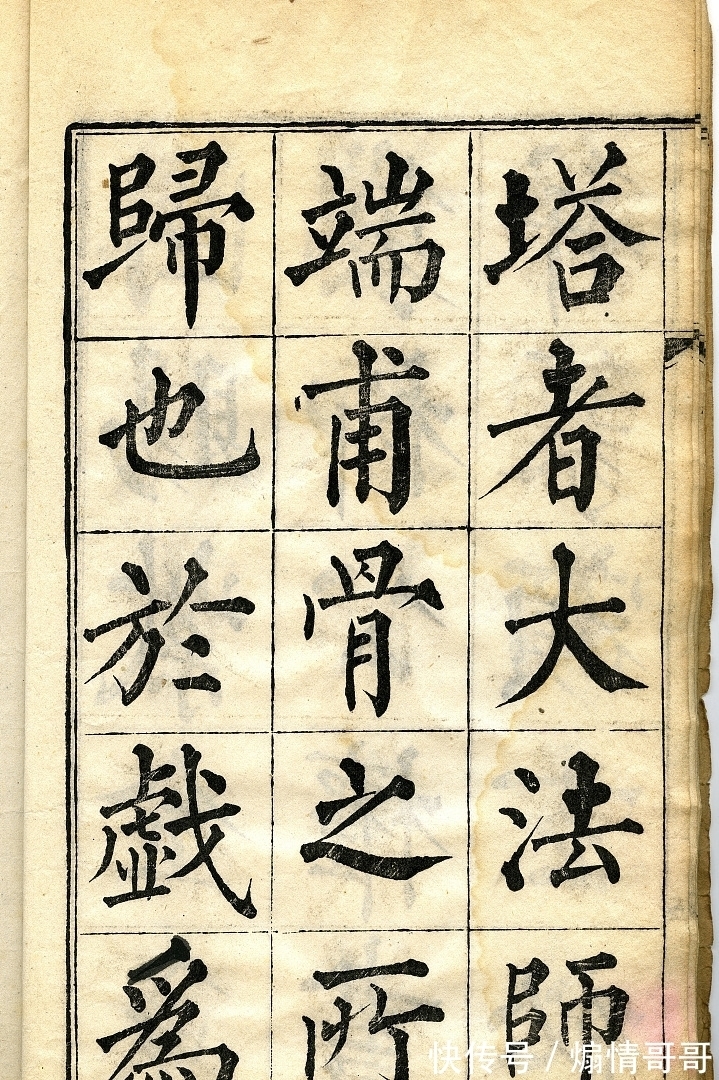 塔者大法師
端甫骨之所
歸也於戲為
快传号 / 煽情哥哥